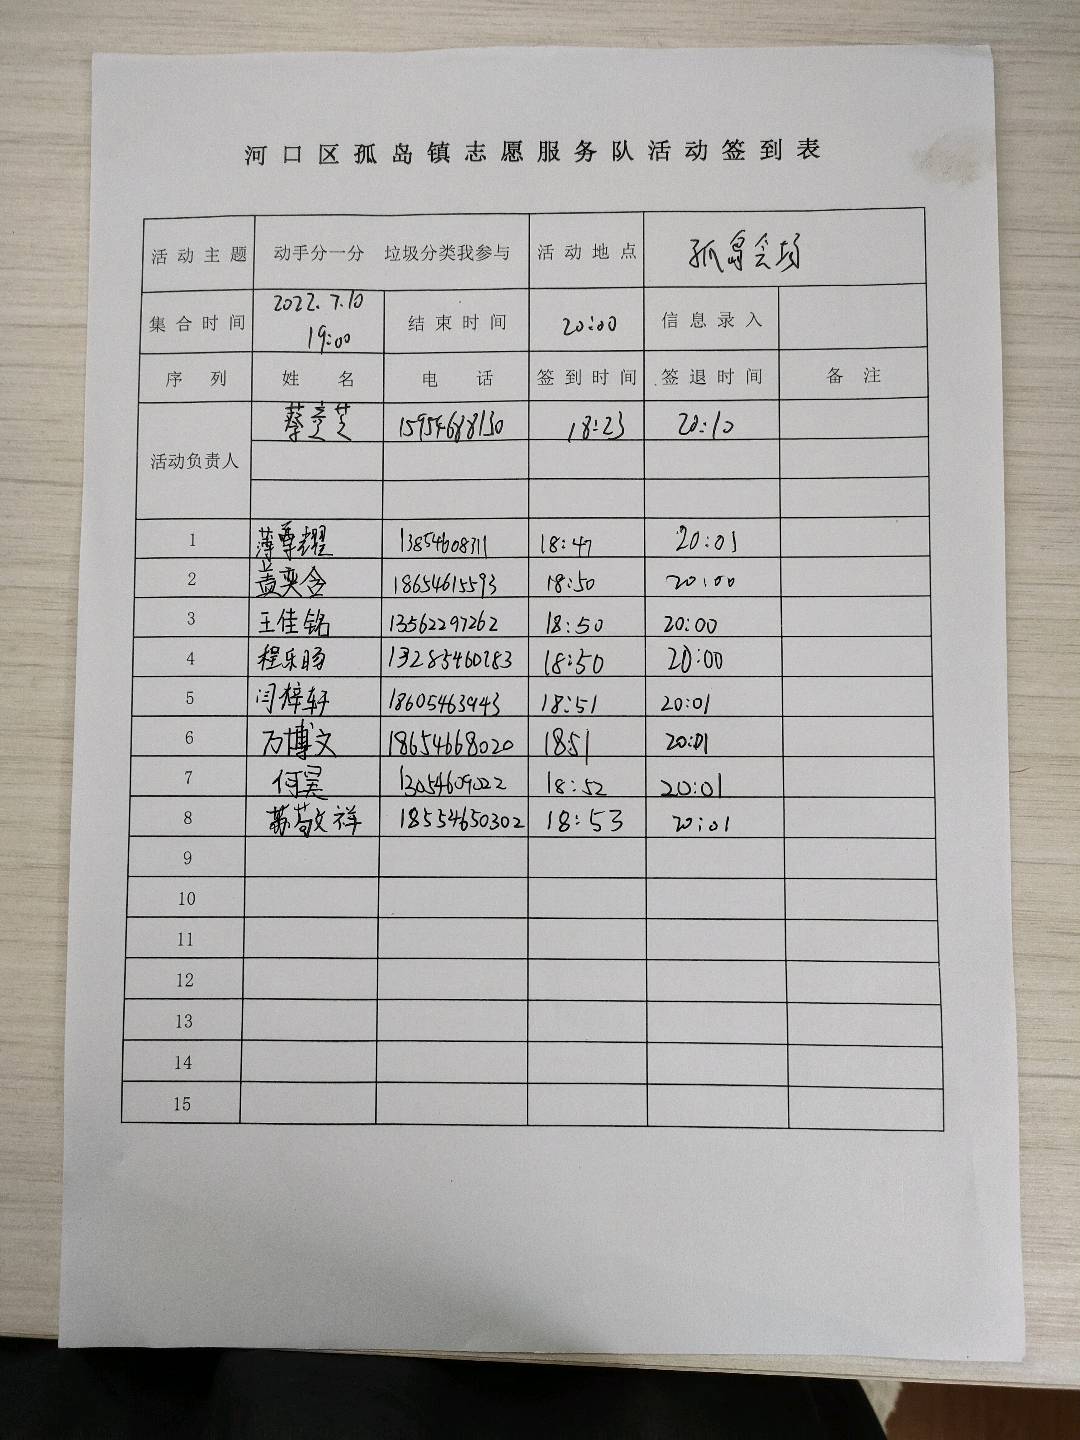 河口区孤岛镇志愿服务队活动签到表
活动主题 动手分一分 垃圾分类我参与 活动地点 孤岛会场
集合时间 2022.7.10 19:00 结束时间 20:00 信息录入
序列 姓名 电话 签到时间 签退时间 备注
活动负责人 15954688130 18:23 20:10
1 薄尊耀 13854608311 18:47 20:01
2 盖奕含 18654615593 18:50 20:00
3 王佳铭 13562297262 18:50 20:00
4 程乐旸 18:50 20:00
5 闫梓轩 18605463943 18:51 20:01
6 万博文 18654668020 1851 20:01
7 何昊 13054609022 18:52 20:01
8 苏敬祥 18554650302 18:53 20:01
9
10
11
12
13
14
15